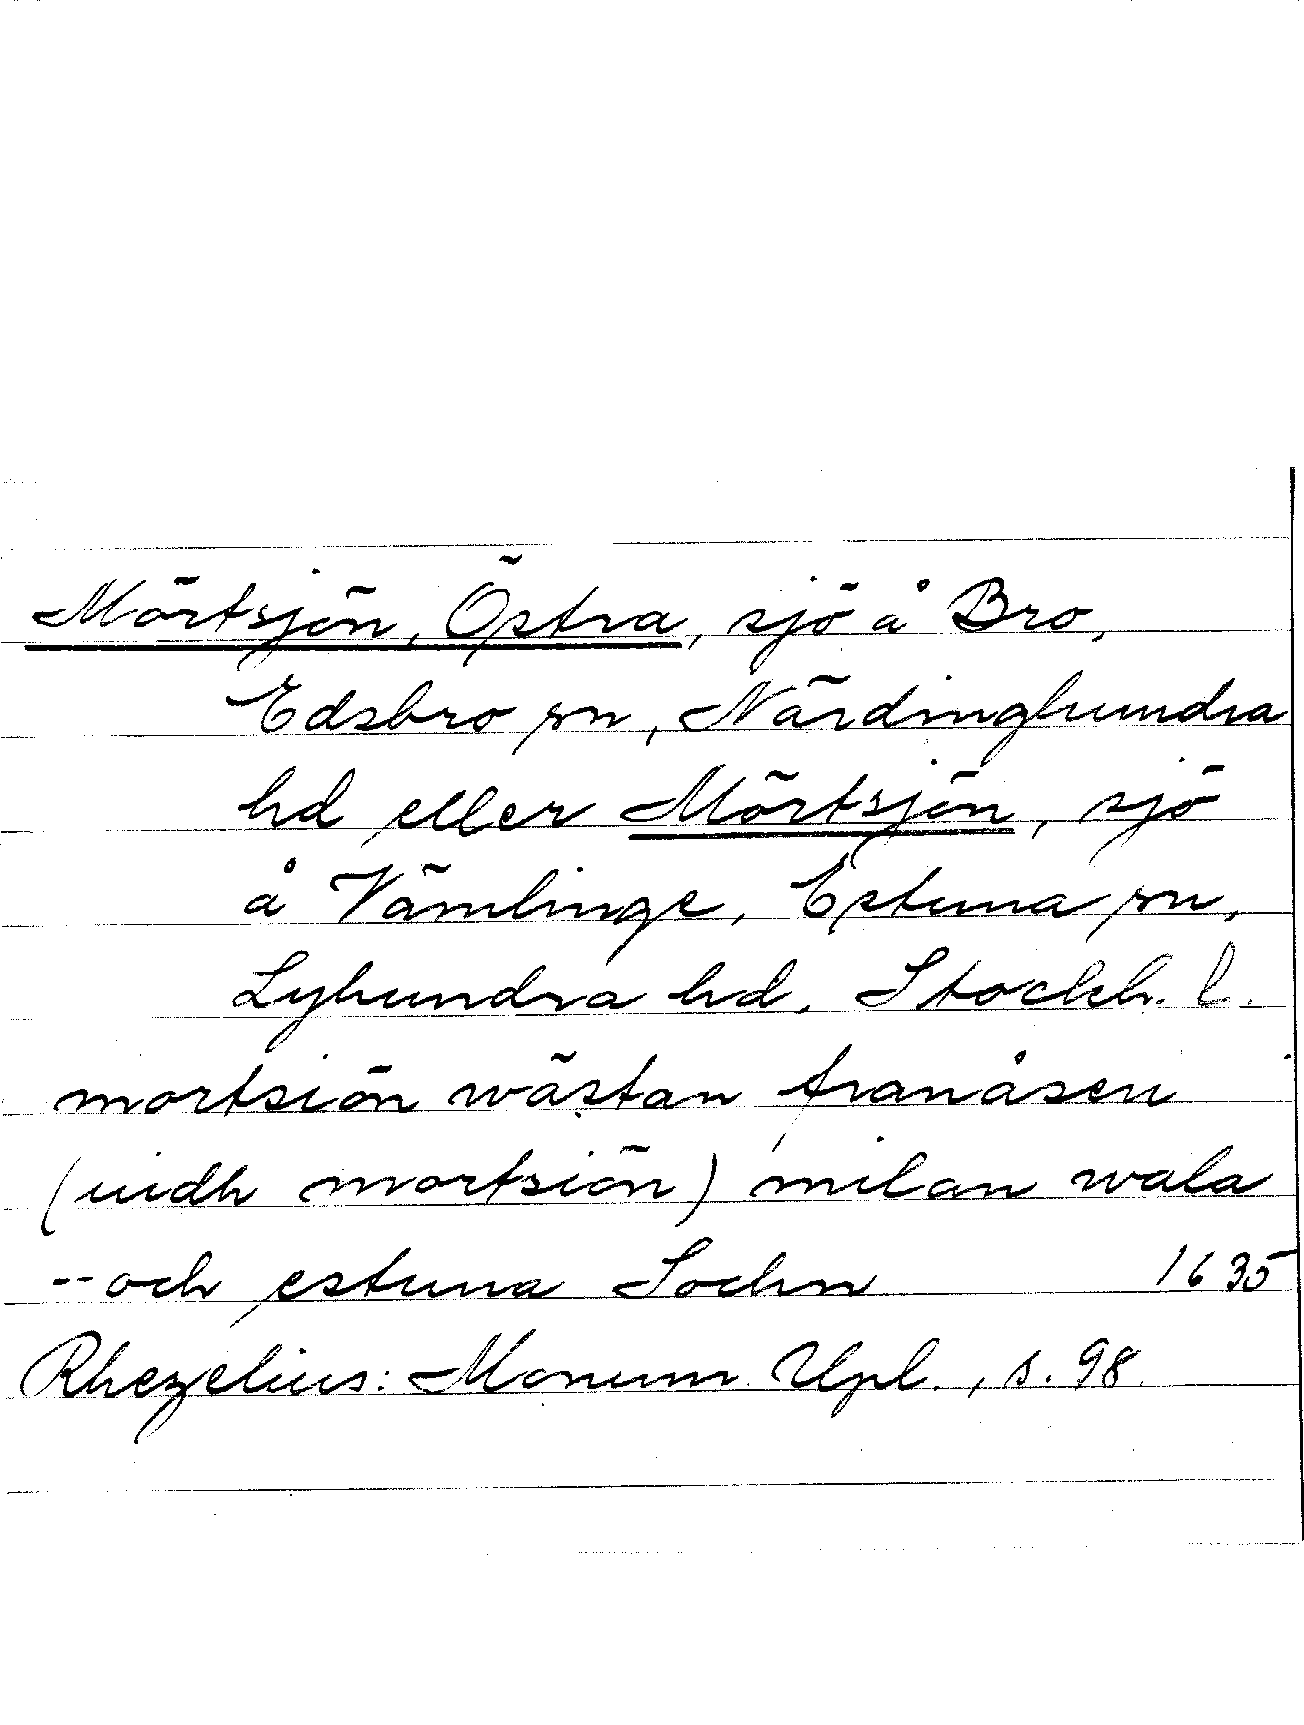 Mörtsjön, Östra, sjö å Bro,
Edsbro sn, Närdinghundra
hd eller Mörtsjön, sjö
å Vämlinge, Estuna sn,
Lyhundra hd, Stockh. l.
mortsiön wästan tranåsen
(uidh mortsiön) milan wala
-- och estuna Sochn 1635
Rhezelius: Monum. Upl., s. 98.